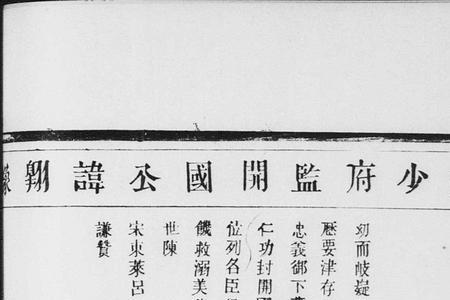 少府監開國公諱
幼而岐嶷
歷要津存
忠義御下
仁功封開國
位列名臣
饑救溺美
世陳
宋東萊呂
謙贊